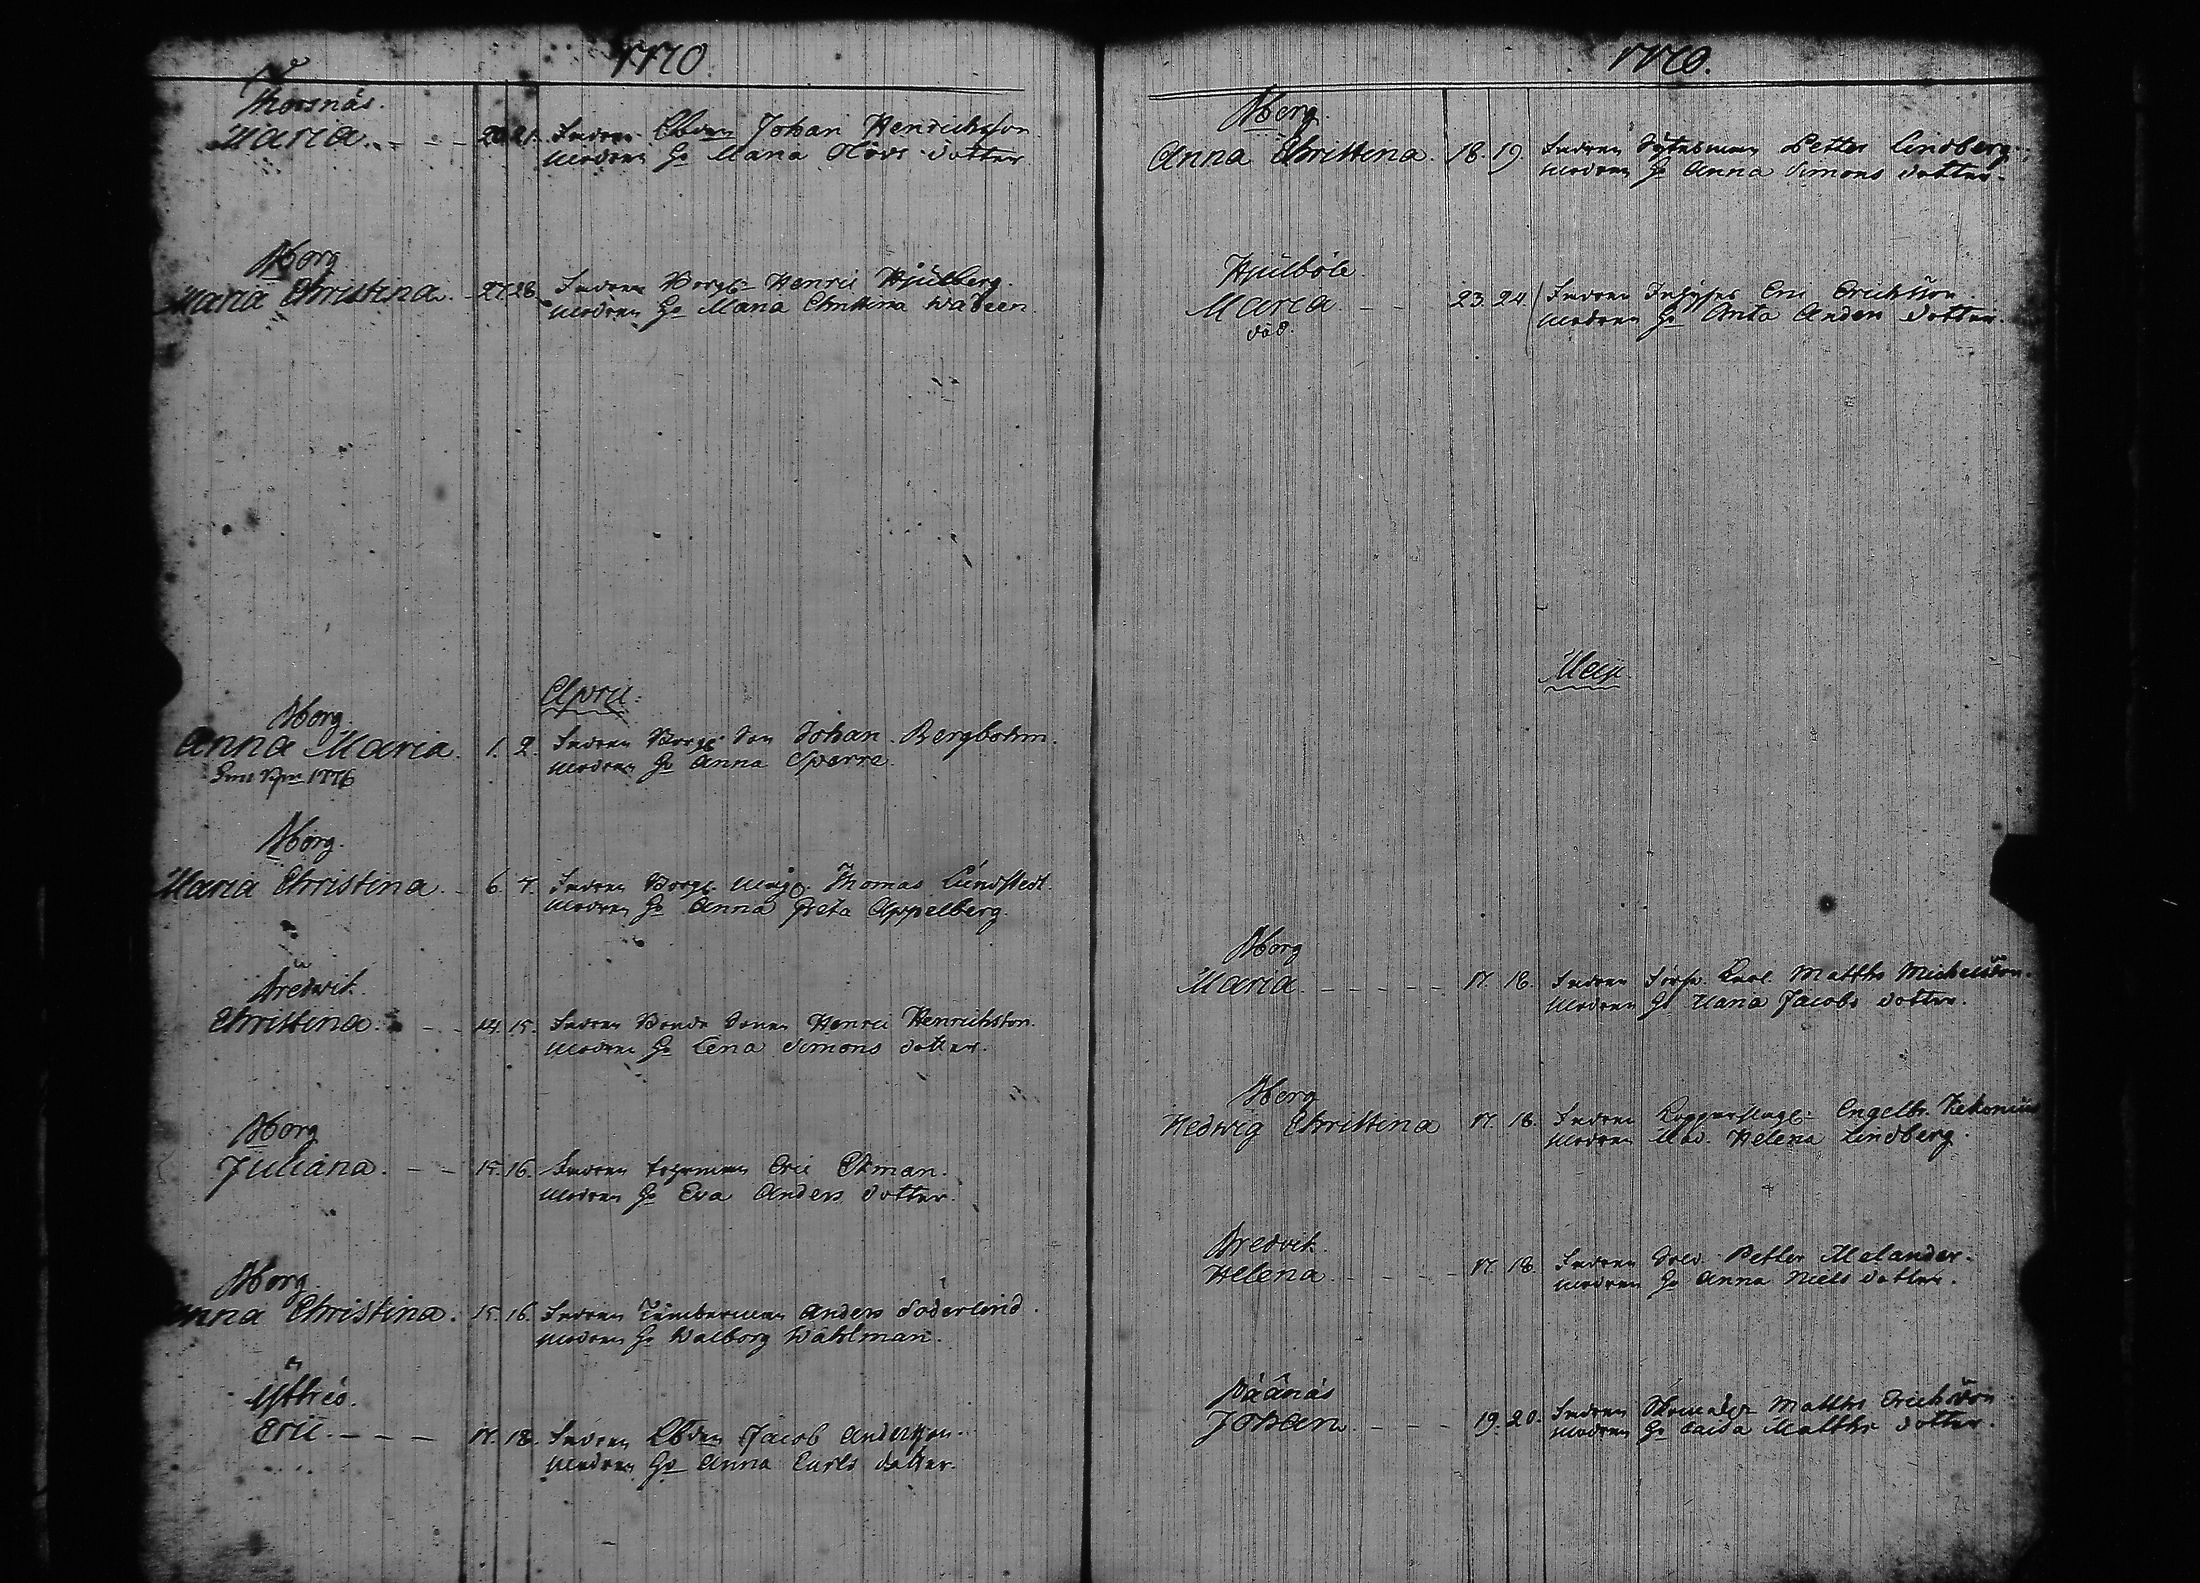 1770
Thorsnäs.
Maria. 20. 21. Fadren Johan Henrichsson
Modren H: Maria Olovs dotter
Nborg
Maria Christina. 27. 28. Fadren Borg: Henric Hjulberg.
Modren H: Maria Christina Wadeen.
April:
Nborg.
Anna Maria. 1. 2. Fadren Borg: Son Johan Bergbohm.
1776 Modren H: Anna Sparre.
Nborg.
Maria Christina. 6. 7. Fadren Borg: Thomas Lundstedt.
Modren H: Anna Greta Appelberg.
Bredvik.
Christina. 14. 15. Fadren Bonde Sonen Henric Henrichsson.
Modren H: Lena Simons dotter.
Nborg
Juliana. 15. 16. Fadren Eric Ekman.
Modren H: Eva Anders dotter.
Nborg.
Anna Christina. 15. 16. Fadren Timberman Anders Söderlind.
Modren H: Walborg Wahlman.
Eric. 17. 18. Fadren Jacob Andersson.
Modren H: Anna Carls dotter.
1770.
Nborg.
Anna Christina. 18. 19. Fadren Petter Lindberg.
Modren H: Anna Simons dotter.
Hjulböle.
Maria 23. 24. Fadren Eric Erichsson
död. Modren H: Anders dotter.
Maji.
Nborg
Maria. 17. 18. Fadren Matths Michelsson.
Modren H: Maria Jacobs dotter.
Nborg
Hedwig Christina 17. 18. Fadren Kopparslag: Engelbr.
Modren Mad. Helena Lindberg.
Bredvik.
Helena. 17. 18. Fadren Sold. Petter Melander.
Modren H: Anna Niels dotter.
Påånäs
Johan. 19. 20. Fadren Matths Erichsson
Modren H: Caisa Matths dotter.